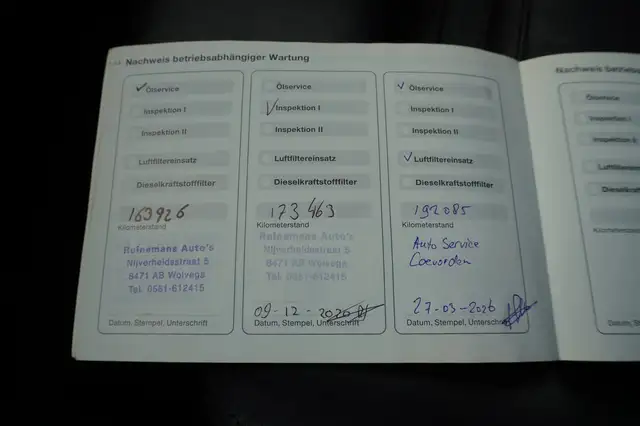 Nachweis betriebsabhängiger Wartung
✓ Ölservice
Inspektion I
Inspektion II
Luftfiltereinsatz
Dieselkraftstofffilter
163926
Kilometerstand
Reinemans Auto's
Nijverheidsstraat 5
8471 AB Wolvega
Tel. 0561-612415
Datum, Stempel, Unterschrift
Ölservice
✓ Inspektion I
Inspektion II
Luftfiltereinsatz
Dieselkraftstofffilter
173463
Kilometerstand
Reinemans Auto's
Nijverheidsstraat 5
8471 AB Wolvega
Tel. 0561-612415
09-12-2020
Datum, Stempel, Unterschrift
✓ Ölservice
Inspektion I
Inspektion II
✓ Luftfiltereinsatz
Dieselkraftstofffilter
192085
Kilometerstand
Auto Service
Coevorden
27-03-2026
Datum, Stempel, Unterschrift
Nachweis
Ölservice
Inspektion I
Inspektion II